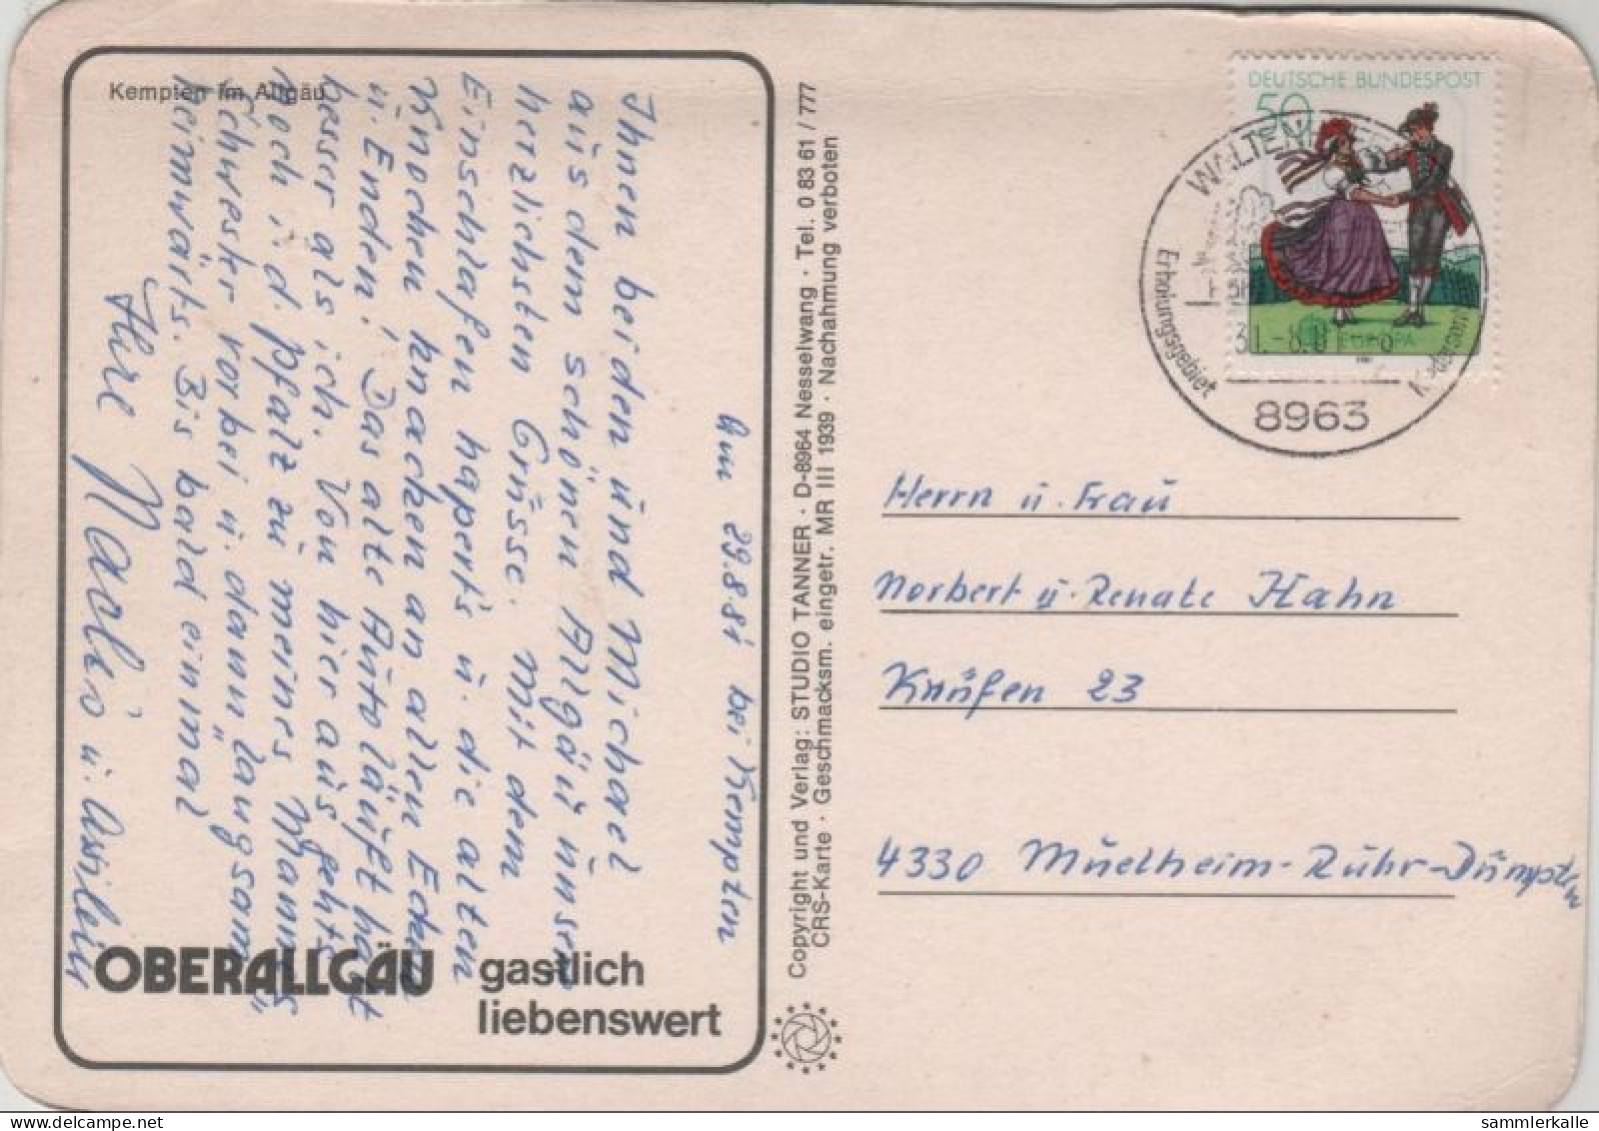 Kempten im Allgäu
Am 29.8.81 bei Kempten
Ihnen beiden und Michael
aus dem schönen Allgäu unsere
herzlichsten Grüsse. Mit dem
Einschlafen hapert's u. die alten
Knochen knacken an allen Ecken
u. Enden! Das alte Auto läuft halt
besser als ich. Von hier aus gehts
noch i. d. Pfalz zu meines Mannes
Schwester vorbei u. dann „langsam"
heimwärts. Bis bald einmal
Ihre
u.
OBERALLGÄU gastlich
liebenswert
Copyright und Verlag: STUDIO TANNER · D-8964 Nesselwang · Tel. 0 83 61 / 777
CRS-Karte · Geschmacksm. eingetr. MR III 1939 · Nachahmung verboten
DEUTSCHE BUNDESPOST
50
EUROPA
Erholungsgebiet
8963
Herrn u. Frau
Norbert u. Renate Hahn
Knüfen 23
4330 Muelheim-Ruhr-Dümpten
sammlerkalle